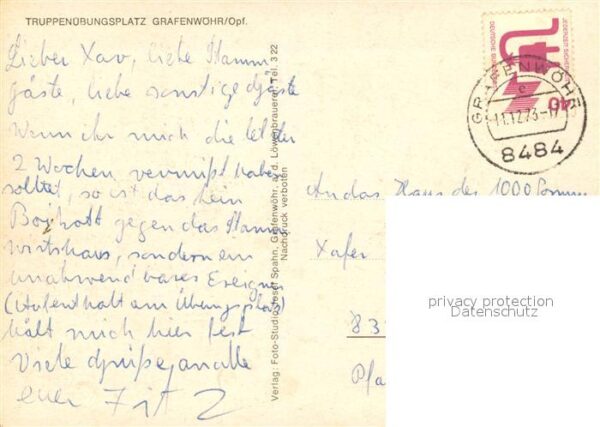 TRUPPENÜBUNGSPLATZ GRAFENWÖHR/Opf.
Lieber Xav, liebe Stamm
gäste, liebe sonstige Gäste
Wenn ihr mich die letzten
2 Wochen vermißt haben
solltet, so ist das kein
Boykott gegen das Stamm
wirtshaus, sondern ein
unabwendbares Ereignis
(Aufenthalt am Übungsplatz)
hält mich hier fest
Viele Grüße an alle
euer
Verlag: Foto-Studio Josef Spahn, Grafenwöhr, a/d. Löwenbrauerei, Tel. 3 22
Nachdruck verboten
DEUTSCHE BUNDES
JEDERZEIT SICHERHEIT
40
GRAFENWÖHR
e
11.12.73-17
8484
An das Haus der 1000
Xafer
83
Pfa
privacy protection
Datenschutz